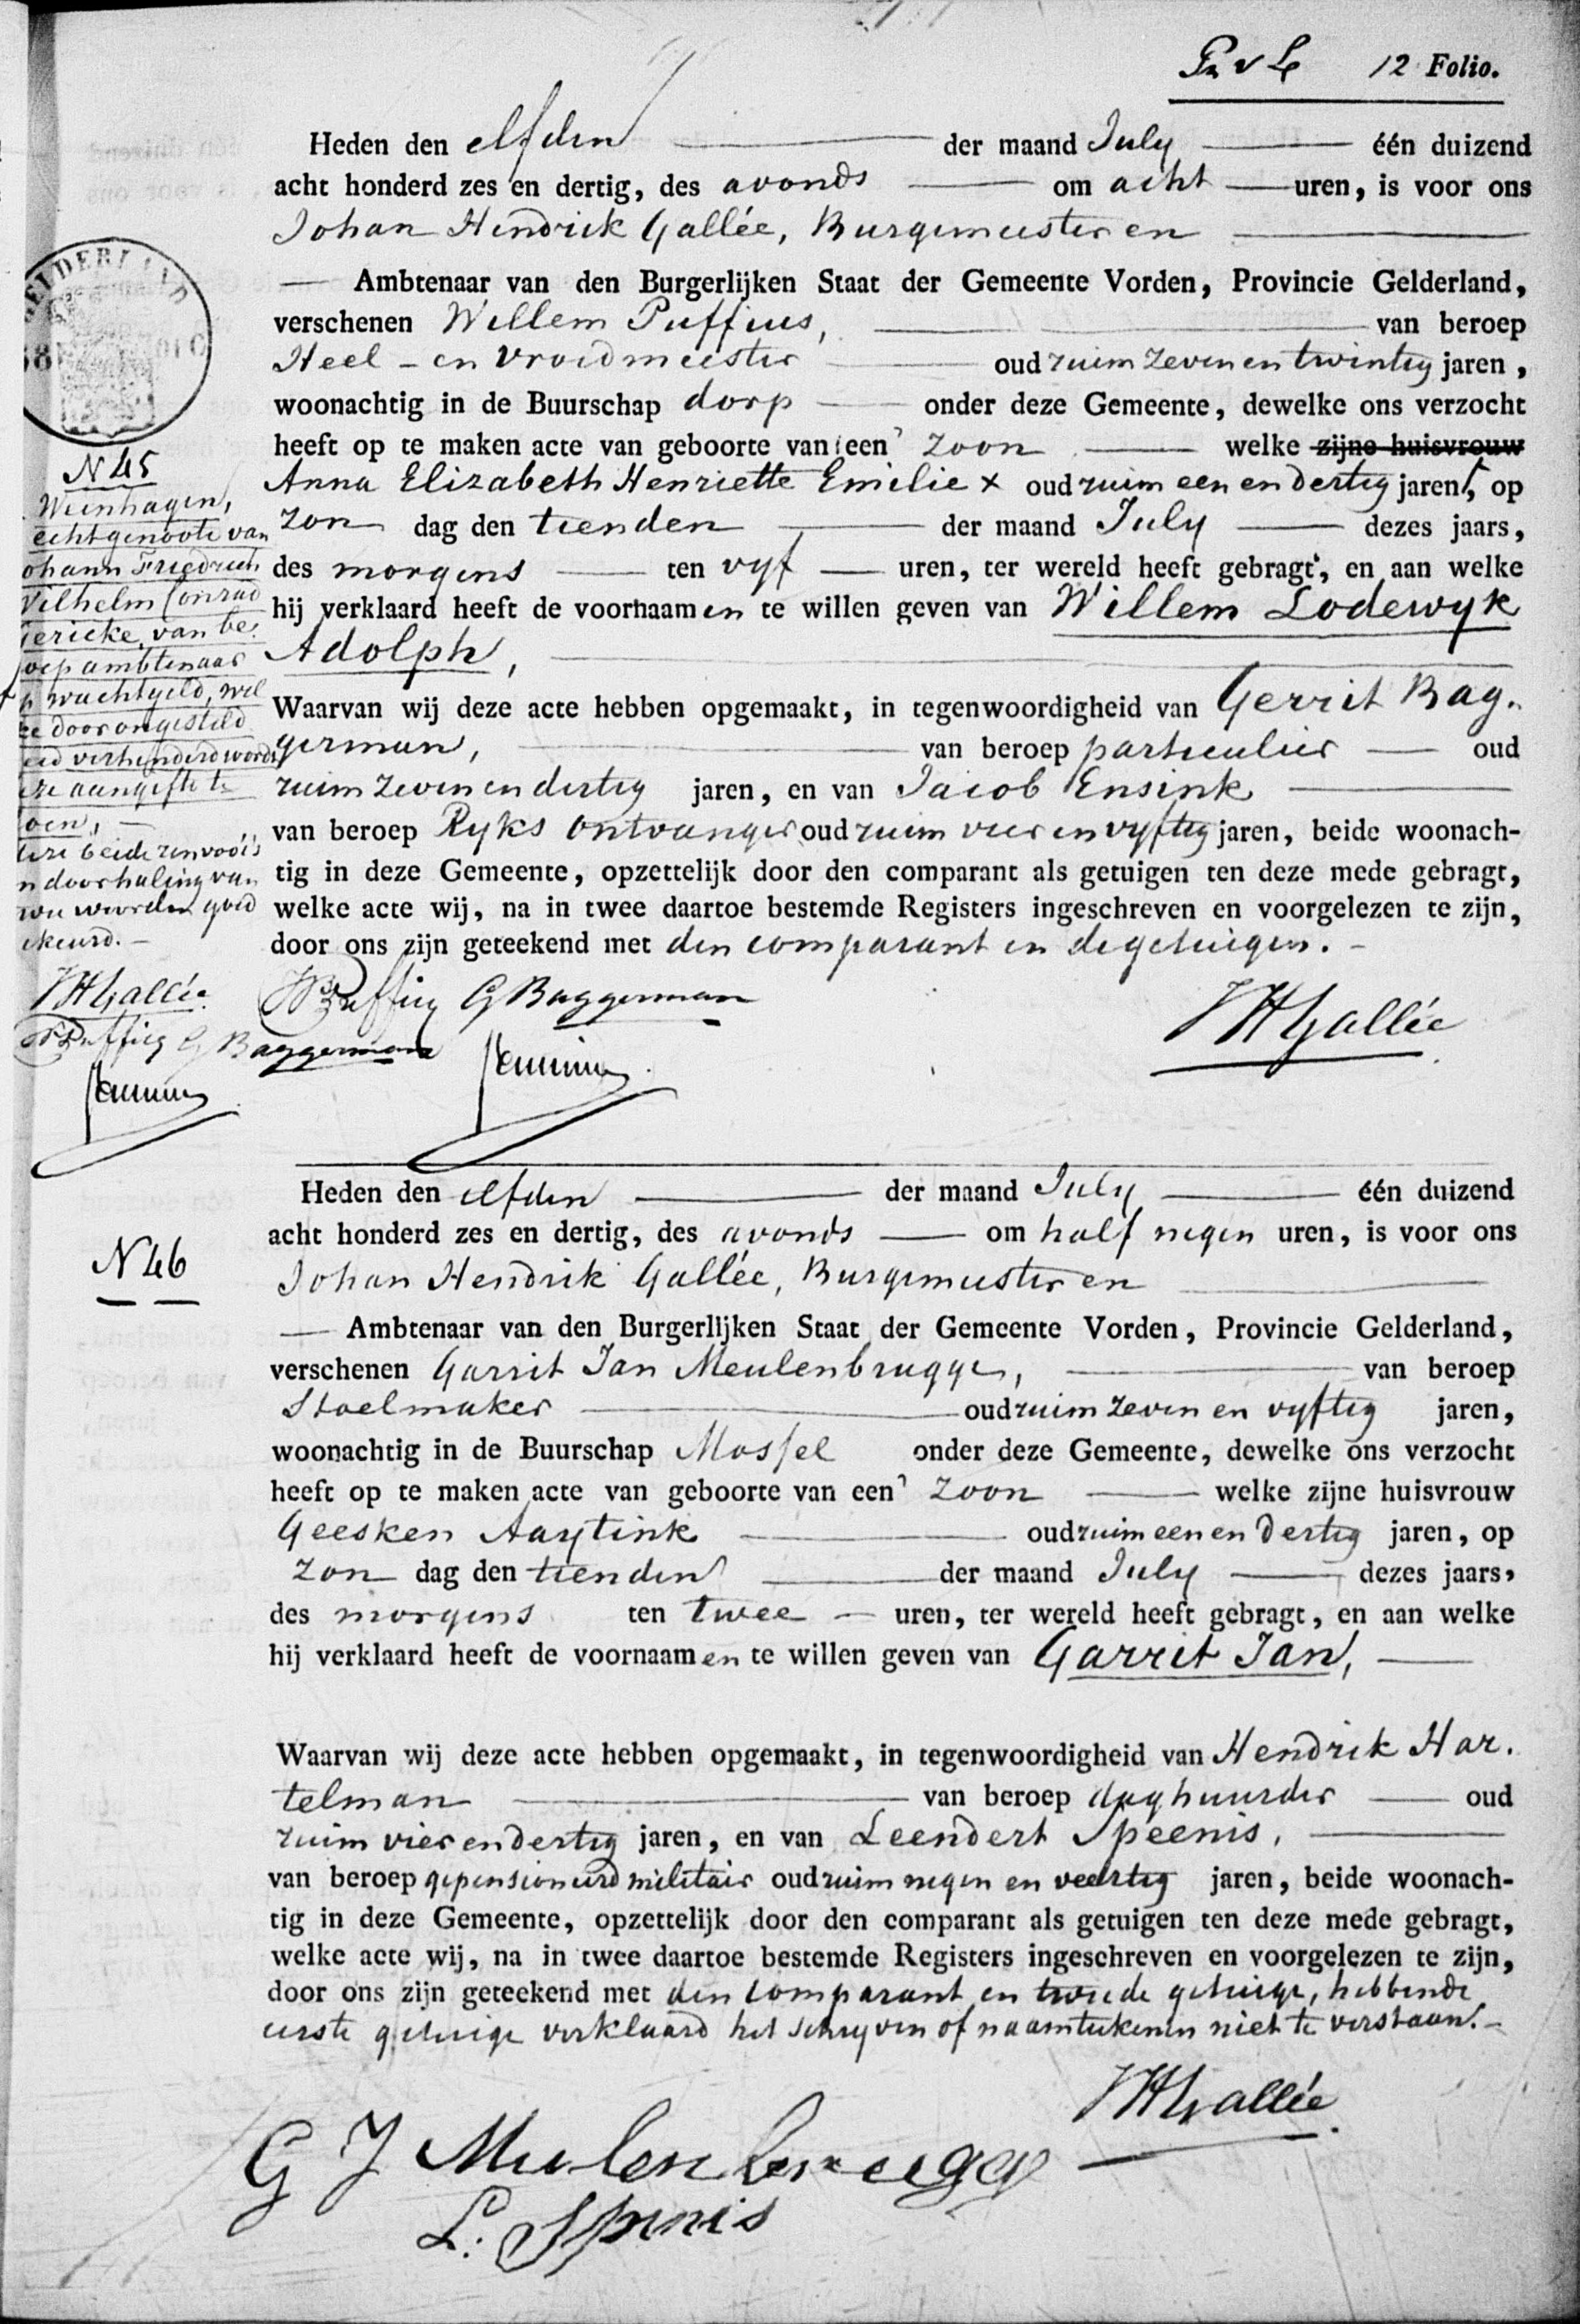 12 Folio.
Heden den elfden der maand July één duizend
acht honderd zes en dertig, des avonds om acht uren, is voor ons
Johan Hendrik Gallée, Burgemeester en
Ambtenaar van den Burgerlijken Staat der Gemeente Vorden, Provincie Gelderland,
verschenen Willem Puffius, van beroep
Heel - en Vroedmeester oud ruim zeven en twintig jaren,
woonachtig in de Buurschap dorp onder deze Gemeente, dewelke ons verzocht
heeft op te maken acte van geboorte van een zoon welke zijne huisvrouw
Anna Elizabeth Henriette Emilie x oud ruim een en dertig jaren, op
zon dag den tienden der maand July dezes jaars,
des morgens ten vyf uren, ter wereld heeft gebragt, en aan welke
hij verklaard heeft de voornaamen te willen geven van Willem Lodewyk
Adolph,
Waarvan wij deze acte hebben opgemaakt, in tegenwoordigheid van Gerrit Bag-
german, van beroep particulier oud
ruim zeven en dertig jaren, en van Jacob Ensink
van beroep Ryks ontvanger oud ruim vier en vyftig jaren, beide woonach-
tig in deze Gemeente, opzettelijk door den comparant als getuigen ten deze mede gebragt,
welke acte wij, na in twee daartoe bestemde Registers ingeschreven en voorgelezen te zijn,
door ons zijn geteekend met den comparant en de getuigen.
GELDERLAND
N 45
Weenhagen,
echtgenoote van
ohann Friedrich
Wilhelm Conrad
Gericke, van be-
roep ambtenaar
op wachtgeld, wel
ke door ongesteld
eid verhinderd wordt
eze aangifte te
oen,
deze beide renvooi's
n doorhaling van
twee woorden goed
ekeurd.
JHGallée
Puffius G Baggerman
JHGallée.
Puffius G Baggerman
Heden den elfden der maand July één duizend
acht honderd zes en dertig, des avonds om half negen uren, is voor ons
N 46
Johan Hendrik Gallée, Burgemeester en
Ambtenaar van den Burgerlijken Staat der Gemeente Vorden, Provincie Gelderland,
verschenen Garrit Jan Meulenbrugge, van beroep
Stoelmaker oud ruim zeven en vyftig jaren,
woonachtig in de Buurschap Mossel onder deze Gemeente, dewelke ons verzocht
heeft op te maken acte van geboorte van een zoon welke zijne huisvrouw
Geesken Aaytink oud ruim een en dertig jaren, op
zon dag den tienden der maand July dezes jaars,
des morgens ten twee uren, ter wereld heeft gebragt, en aan welke
hij verklaard heeft de voornaamen te willen geven van Garrit Jan,
Waarvan wij deze acte hebben opgemaakt, in tegenwoordigheid van Hendrik Har-
telman van beroep daghuurder oud
ruim vier en dertig jaren, en van Leendert Speenis,
van beroep gepensioneerd militair oud ruim negen en veertig jaren, beide woonach-
tig in deze Gemeente, opzettelijk door den comparant als getuigen ten deze mede gebragt,
welke acte wij, na in twee daartoe bestemde Registers ingeschreven en voorgelezen te zijn,
door ons zijn geteekend met den comparant en tweede getuige, hebbende
eerste getuige verklaard het schryven of naamteekenen niet te verstaan.
JHGallée
G J Mulenbrugge
L. Spenis